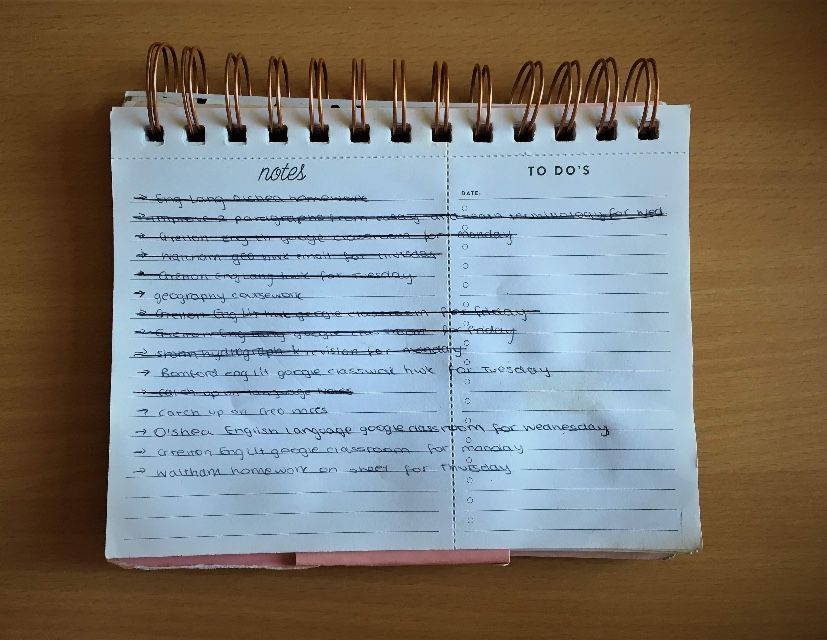 notes
TO DO'S
DATE:
→ Eng Lang O'shea homework
→ improve 2 paragraphs from essay and terminology for Wed
→ eng lit google classroom for monday
→ Waltham geo hwk email for thursday
→ Eng Lang hwk for Tuesday
→ geography coursework
→ Eng Lit hwk google classroom for friday
→ Eng google for friday
→ hydrograph revision for monday
→ Bamford eng Lit google classwork hwk for Tuesday
→ catch up on language notes
→ catch up on Geo notes
→ O'shea English Language google classroom for wednesday
→ Eng Lit google classroom for monday
→ Waltham homework on sheet for Thursday